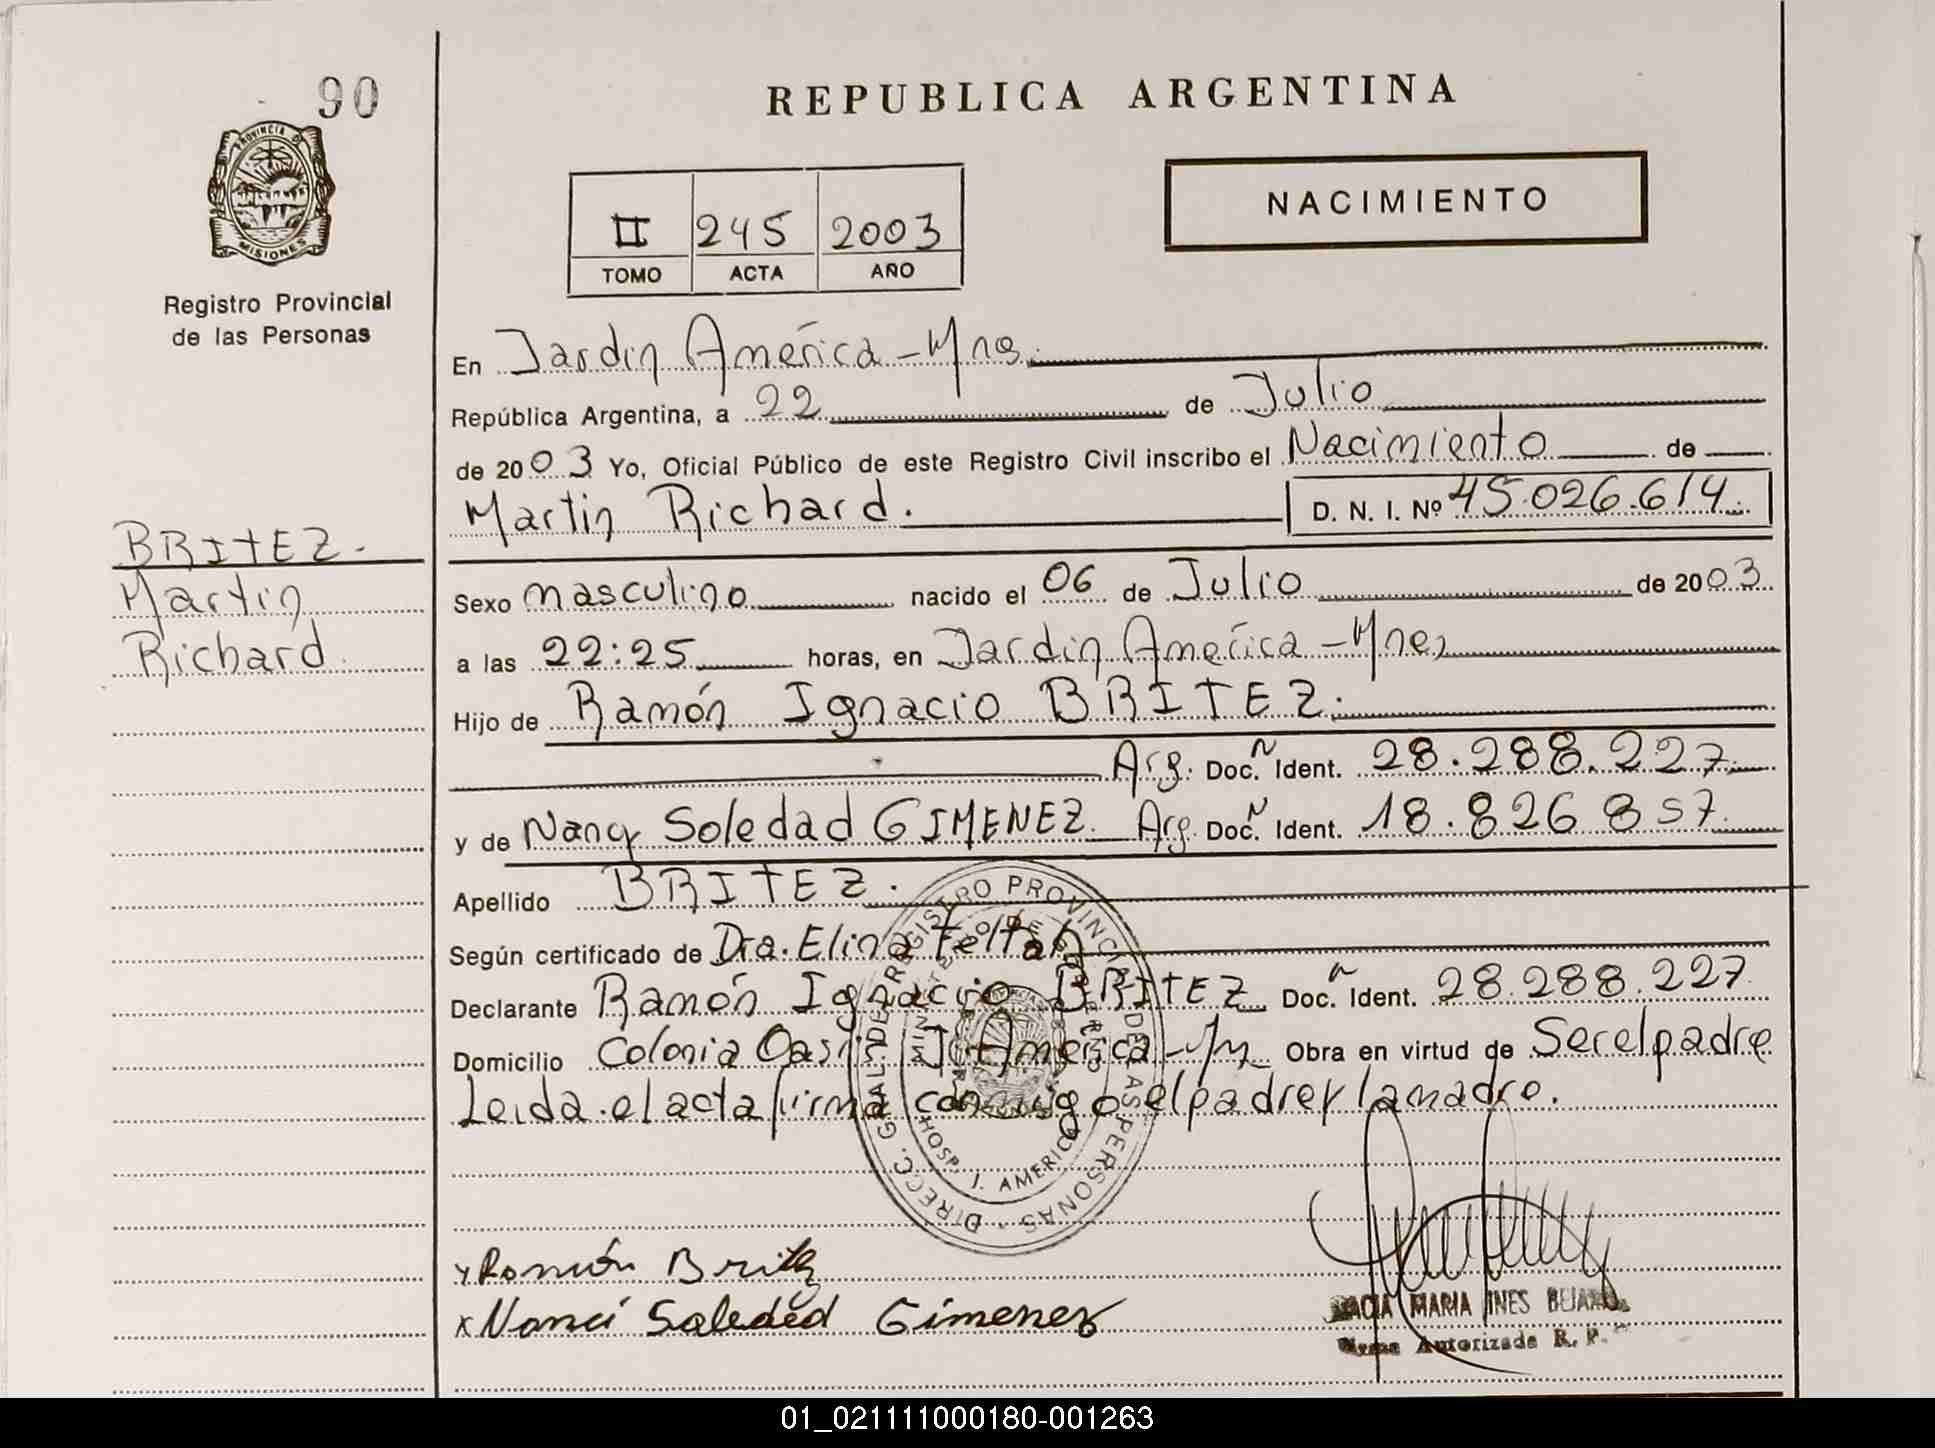 90
REPUBLICA ARGENTINA
PROVINCIA DE
MISIONES
Registro Provincial
de las Personas
II 245 2003
TOMO ACTA AÑO
NACIMIENTO
En Jardín América - Mnes.
República Argentina, a 22 de Julio
de 2003 Yo, Oficial Público de este Registro Civil inscribo el Nacimiento de
Martin Richard. D. N. I. Nº 45.026.614.
BRITEZ.
Martin
Richard.
Sexo masculino nacido el 06 de Julio de 2003
a las 22:25 horas, en Jardín América - Mnes
Hijo de Ramón Ignacio BRITEZ.
Arg. Doc. Ident. 28.288.227
y de Nancy Soledad GIMENEZ. Arg. Doc. Ident. 18.826 857
Apellido BRITEZ.
Según certificado de Dra. Elina
Declarante Ramón Ignacio BRITEZ Doc. Ident. 28.288.227
Domicilio Colonia J. América - Mnes Obra en virtud de Ser el padre
Leida el acta firma conmigo el padre y la madre.
DIRECC. GRAL. DE REGISTRO PROVINCIAL DE LAS PERSONAS
HOSP. J. AMERICA
x Ramón Britez
x Nanci Soledad Gimenez
MARIA INES
Firma Autorizada R. P.
01_021111000180-001263